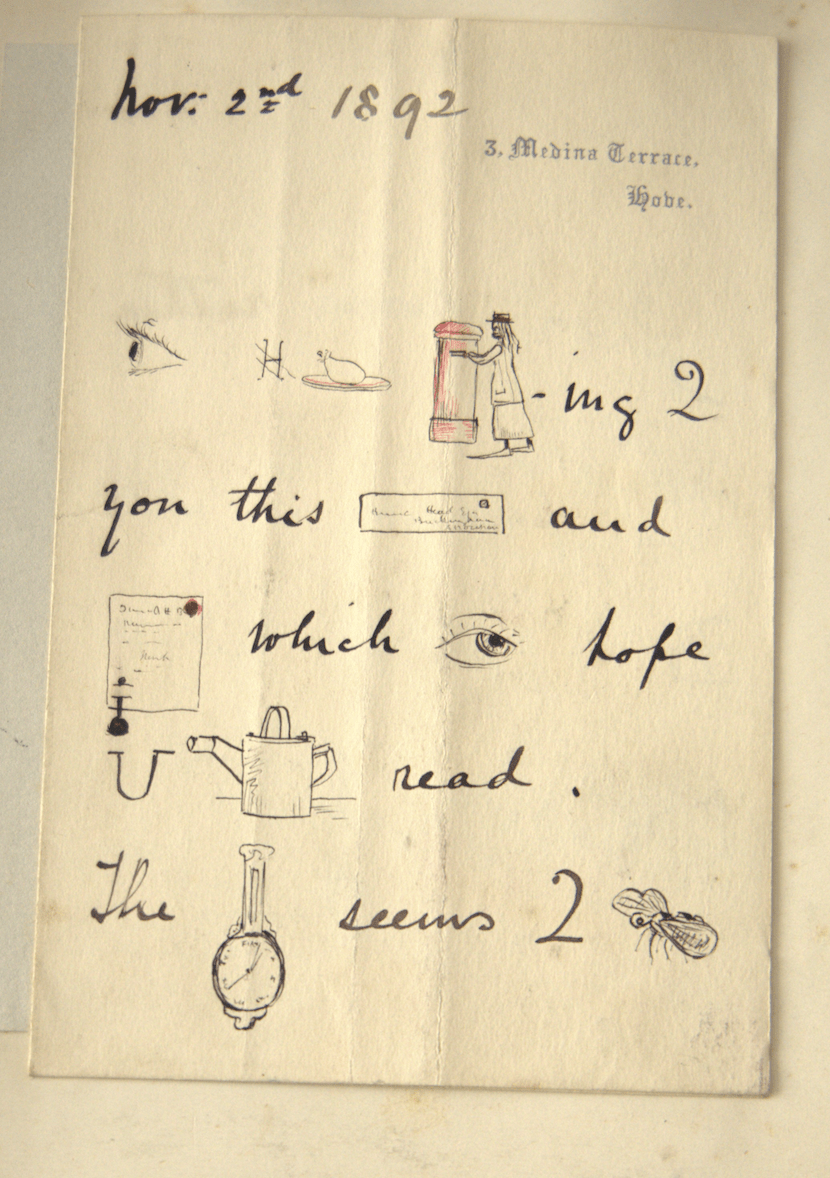 Nov: 2nd 1892
3, Medina Terrace,
Hove.
H -ing 2
you this and
which hope
U read .
The seems 2